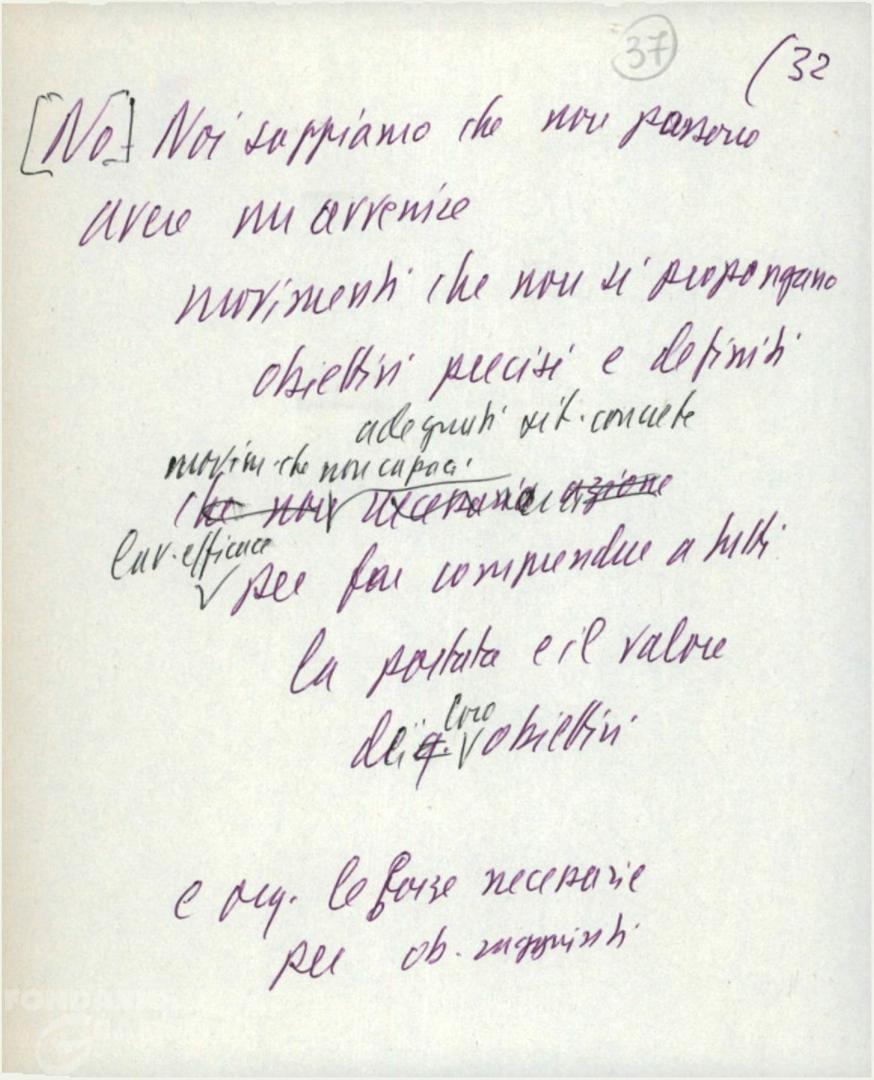 37
(32
[No] Noi sappiamo che non possono
avere un avvenire
movimenti che non si propongano
obiettivi precisi e definiti
adeguati sit. concrete
movim. che non capaci
che non necessaria azione
lav. efficace
per far comprendere a tutti
la portata e il valore
dei q. loro obiettivi
e org. le forze necessarie
per ob. raggiunti
FONDAZIO